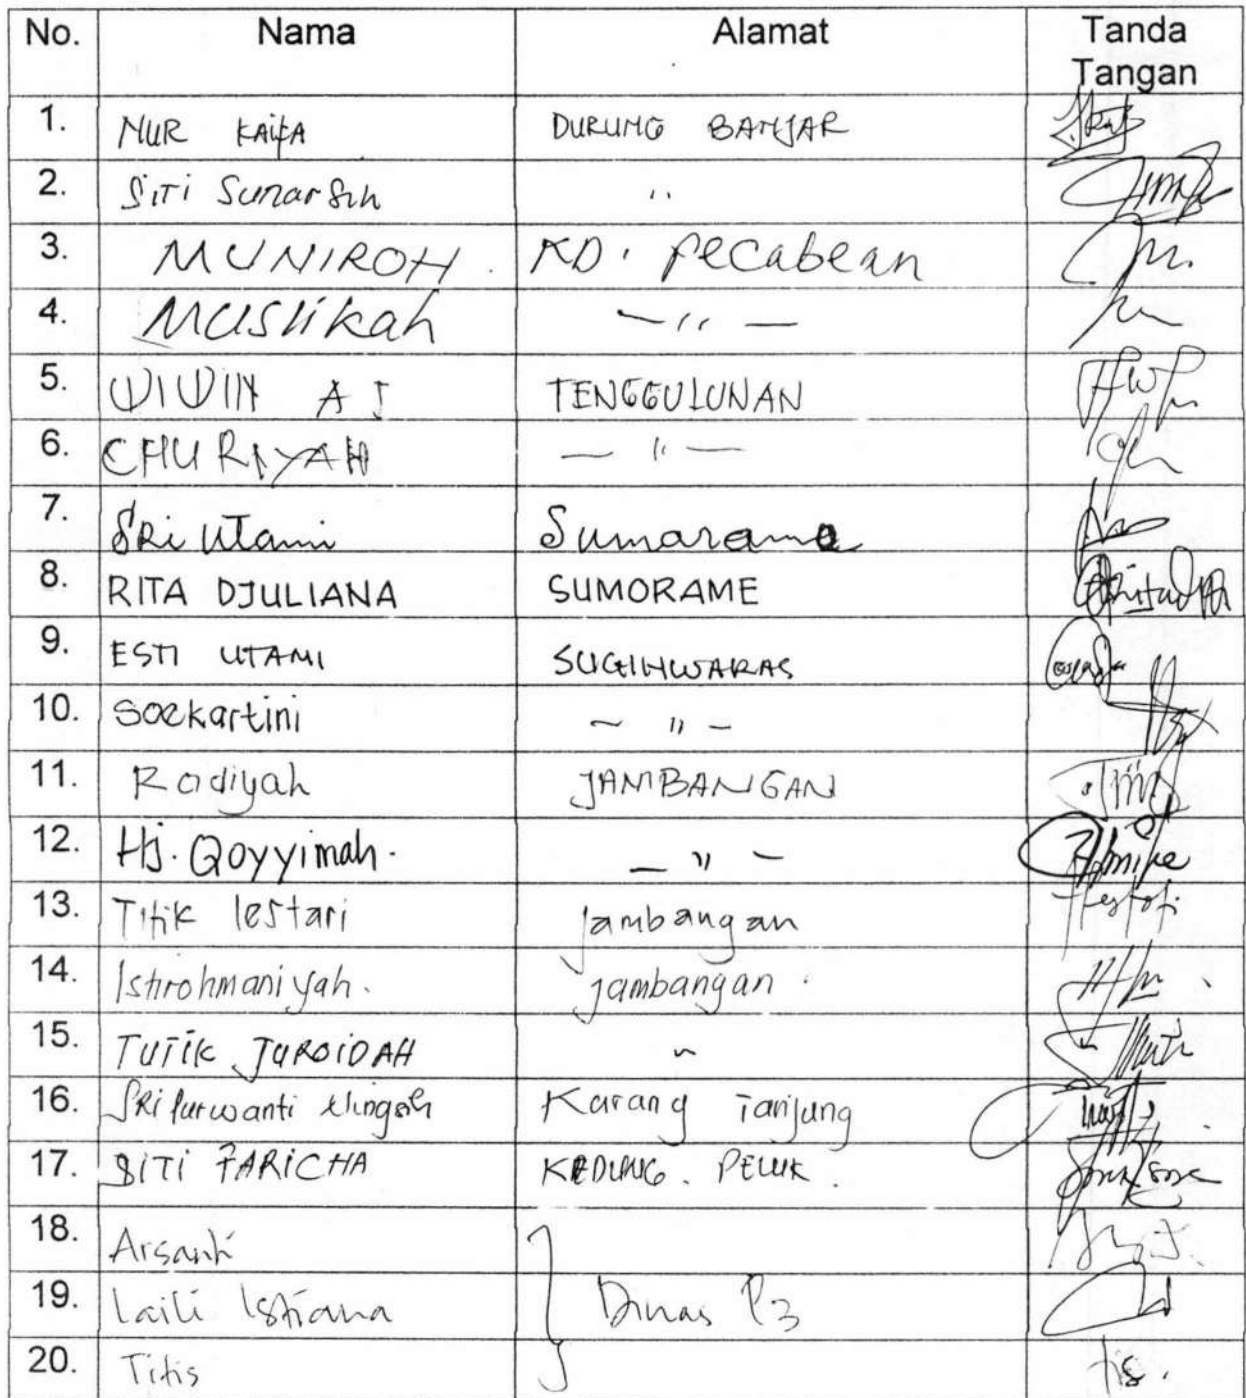 No. Nama Alamat Tanda
Tangan
1. NUR KAIFA DURUNG BANJAR
2. Siti Sunarsih "
3. MUNIROH. KD. Pecabean
4. Muslikah — " —
5. WIWIN A J TENGGULUNAN
6. CHURIYAH — " —
7. Sri Utami Sumarame
8. RITA DJULIANA SUMORAME
9. ESTI UTAMI SUGIHWARAS
10. Soekartini ~ " –
11. Rodiyah JAMBANGAN
12. Hj. Qoyyimah. — " –
13. Titik lestari jambangan
14. Istirohmaniyah. jambangan.
15. TUTIK JUROIDAH "
16. SRi Purwanti Karang Tanjung
17. SITI FARICHA KEDUNG. PELUK.
18. Arsanti
19. Laili Istiana } Dinas P3
20. Titis